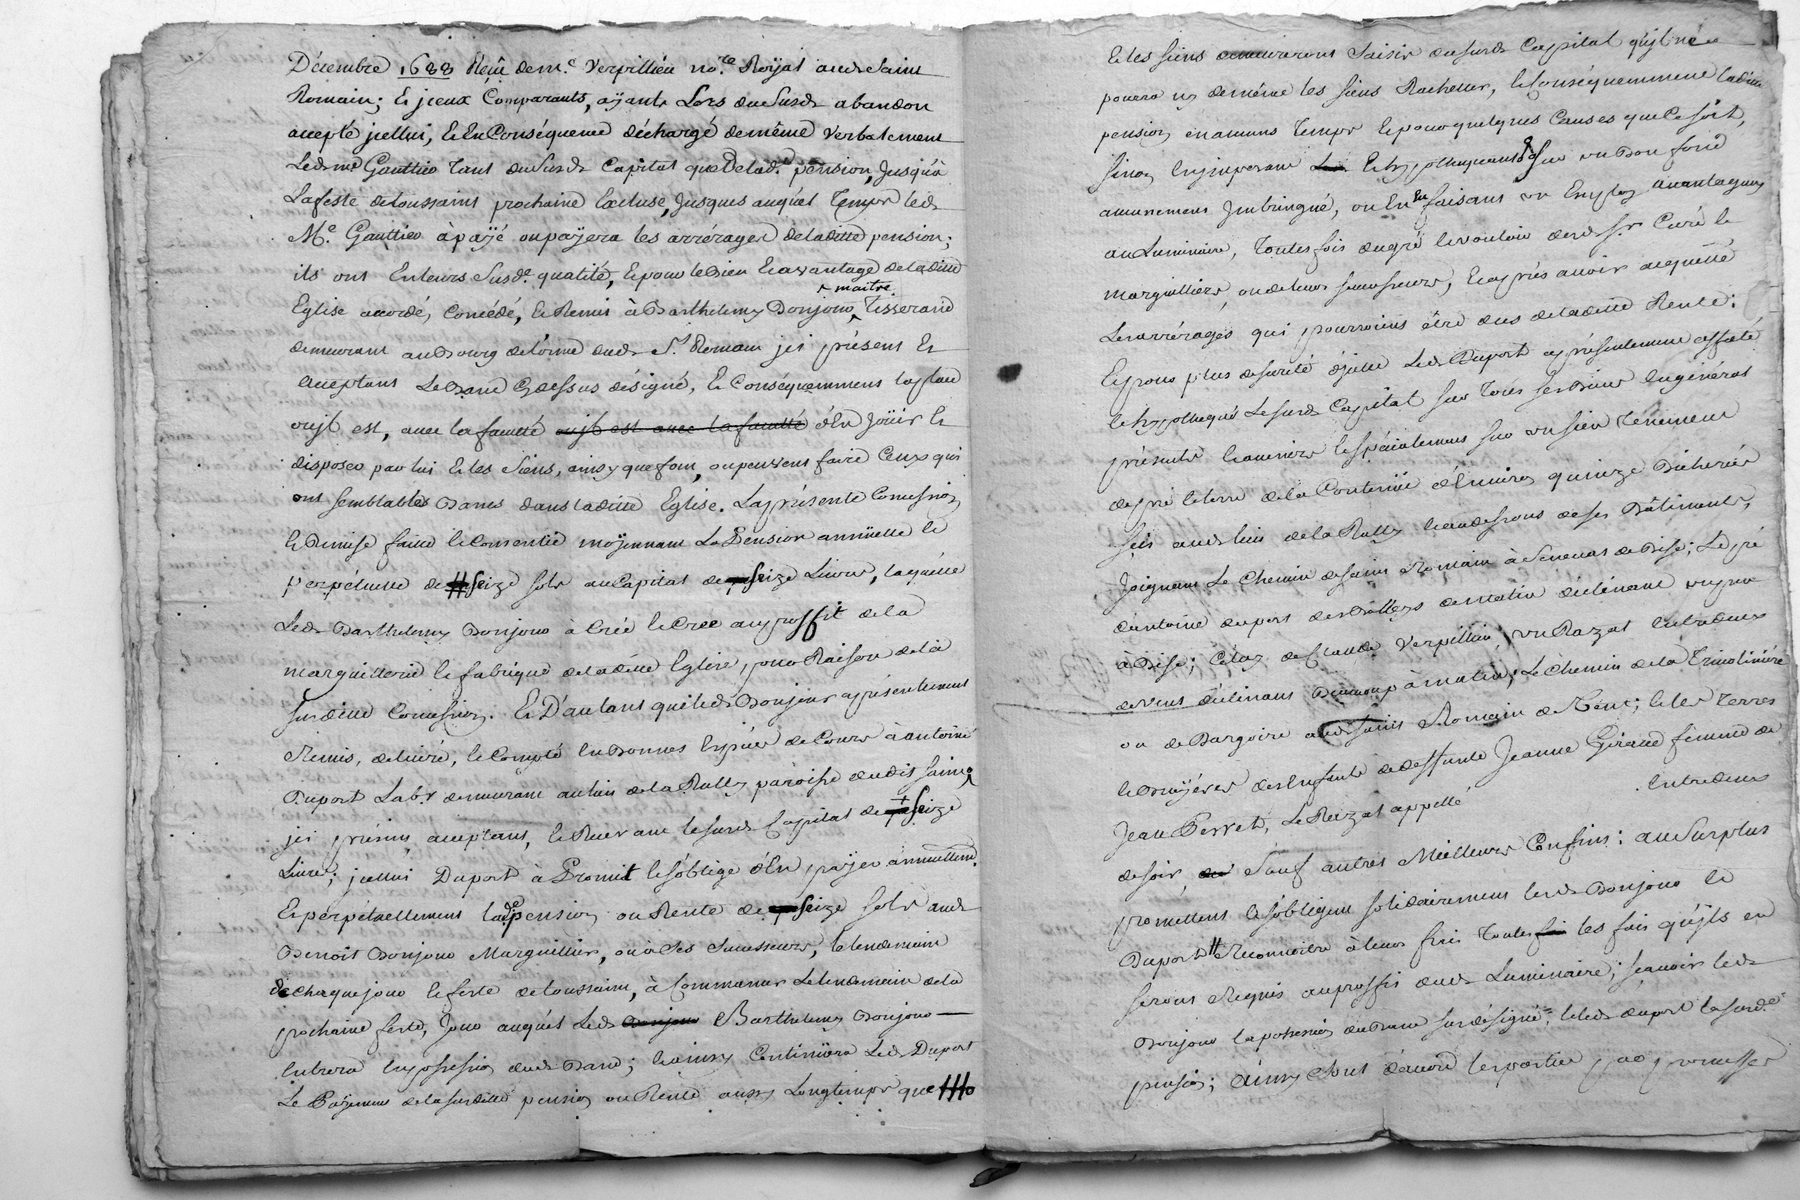 Décembre 1688 Reçû de m.e Verpillieu no.re Royal aud. Saint
Romain; Et jceux Comparants, aÿants Lors du Susd. abandon
accepté jcelluj, Et En Conséquence déchargé de même Verbalement
Led. m.e Gauttier tant du Susd. Capital que De lad. pension, Jusqu'à
La feste de toussaint prochaine Excluse, Jusques auquel Temps led.
M.e Gauttier à paÿé ou paÿera les arrérages de laditte pension;
ils ont En leurs Susd.e qualité, Et pour le bien Et avantage de laditte
Eglise accordé, Concédé, Et Remis à Barthelemy Bonjour, maitre Tisserand
demeurant au Bourg de lôrme dud. S.t Romain jci présent Et
acceptant Le banc Cy dessus désigné, Et Conséquemment la place
ou jl est, avec la faculté ou jl est avec la faculté d'En Joüir Et
disposer par lui Et les Siens, ainsy que font, ou peuvent faire Ceux qui
ont semblables Bancs dans laditte Eglise. La présente Concession
Et Remise faitte Et Consentie moÿennant La Pension annüelle Et
perpétuelle de seize sols au Capital de seize Livres, laquelle
Led. Barthelemy Bonjour à Créé Et Crée au proffit de la
marguillerie Et fabrique de laditte Eglise, pour Raison de la
susditte Concession. Et D'autant que led. Bonjour a présentement
Remis, délivré, Et Compté En Bonnes Espèces de Cours à antoine
Duport Lab.r demeurant au lieu de la Rully paroisse dudit saint
jci présent, acceptant, Et Recevant le susd. Capital de seize
Livres; jcelluj Duport à Promit Et s'oblige d'En païer annuellem.t
Et perpétuellement lad.e pension ou Rente de seize sols aud.
Benoît Bonjour Marguillier, ou à Ses Successeurs, le lendemain
de chaque jour Et feste de toussaint, à Commancer Le lendemain de la
prochaine feste, Jour auquel Led. Bonjour Barthelemy Bonjour
Entrera En possession dud. Banc; Et ainsy Continüera Led. Duport
Le Païement de la susditte pension ou Rente aussy Longtemps que
Et les siens demeureront Saisis du susd. Capital qu'jl ne
poura ny de même les siens Rachetter, Et Conséquemment laditte
pension en aucuns Temps Et pour quelques Causes que Ce soit,
sinon En jmposant Et hypothequant sur un Bon fond
aucunement Jmbringué, ou En En faisant un Employ avantageux
au Luminaire, Toutesfois du gré Et vouloir desd. s.r Curé Et
marguilliers, ou de leurs successeurs, Et après avoir acquitté
Les arrérages qui pourroient être dus de laditte Rente:
Et pour plus de sureté d'jcelle Led. Duport a présentement affecté
Et hypothequé Le susd. Capital sur Tous ses Biens En général
présents Et avenirs Et spécialement sur un sien tenement
de pré Et terre de la Contenüe d'Environ quinze Bicherées
sis aud. lieu de la Rully Et au dessous de ses Bâtiments,
Joignant Le Chemin de saint Romain à Senevas de Bise; Le pré
d'antoine duport de matin déclinant un peu
à Bise; Celuy de Claude Verpillieu, un Razat Entredeux
devent déclinant Beaucoup à matin; Le Chemin de la
ou de Bargoire aud. saint Romain de Vent; Et les Terres
Et Bruÿères des Enfants de deffunte Jeanne Giraud femme de
Jean Perret, Le Razat appellé Entredeux
de soir, Sauf autres Meilleurs Confins: au Surplus
promettent Et s'obligent solidairement lesd. Bonjour Et
Duport Reconnoitre à leurs frais toutes les fois qu'jls en
seront Requis au proffit dud. Luminaire; sçavoir led.
Bonjour la possession du Banc susdésigné, Et led. duport la susd.e
pension; Ainsy Est d'accord les parties par promesse